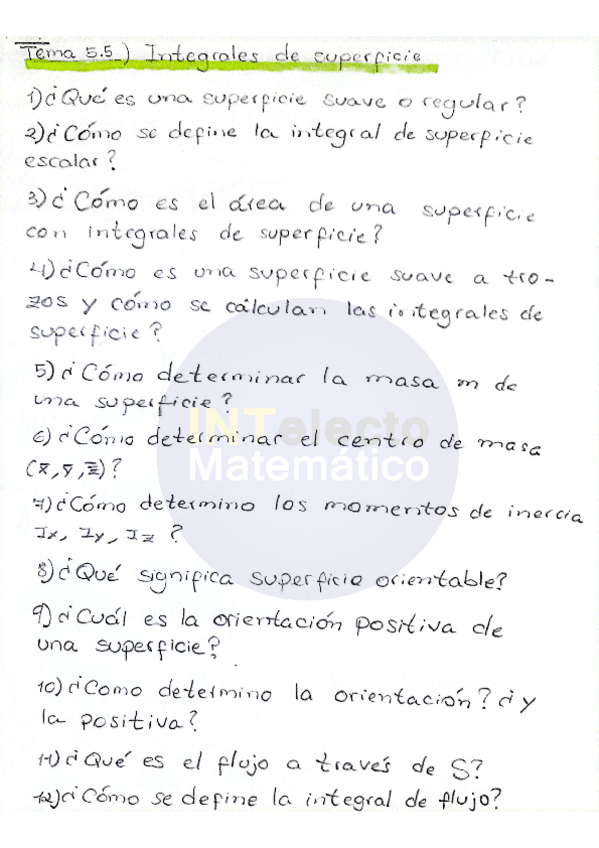 Tema 5.5) Integrales de superficie
1)¿Qué es una superficie suave o regular?
2)¿Cómo se define la integral de superficie
escalar?
3)¿Cómo es el área de una superficie
con integrales de superficie?
4)¿Cómo es una superficie suave a tro-
zos y cómo se calculan las integrales de
superficie?
5)¿Cómo determinar la masa m de
una superficie?
INTelecto
6)¿Cómo determinar el centro de masa
Matemático
(x̄,ȳ,z̄)?
7)¿Cómo determino los momentos de inercia
Ix, Iy, Iz ?
8)¿Qué significa superficie orientable?
9)¿Cuál es la orientación positiva de
una superficie?
10)¿Como determino la orientación? ¿y
la positiva?
11)¿Qué es el flujo a través de S?
12)¿Cómo se define la integral de flujo?